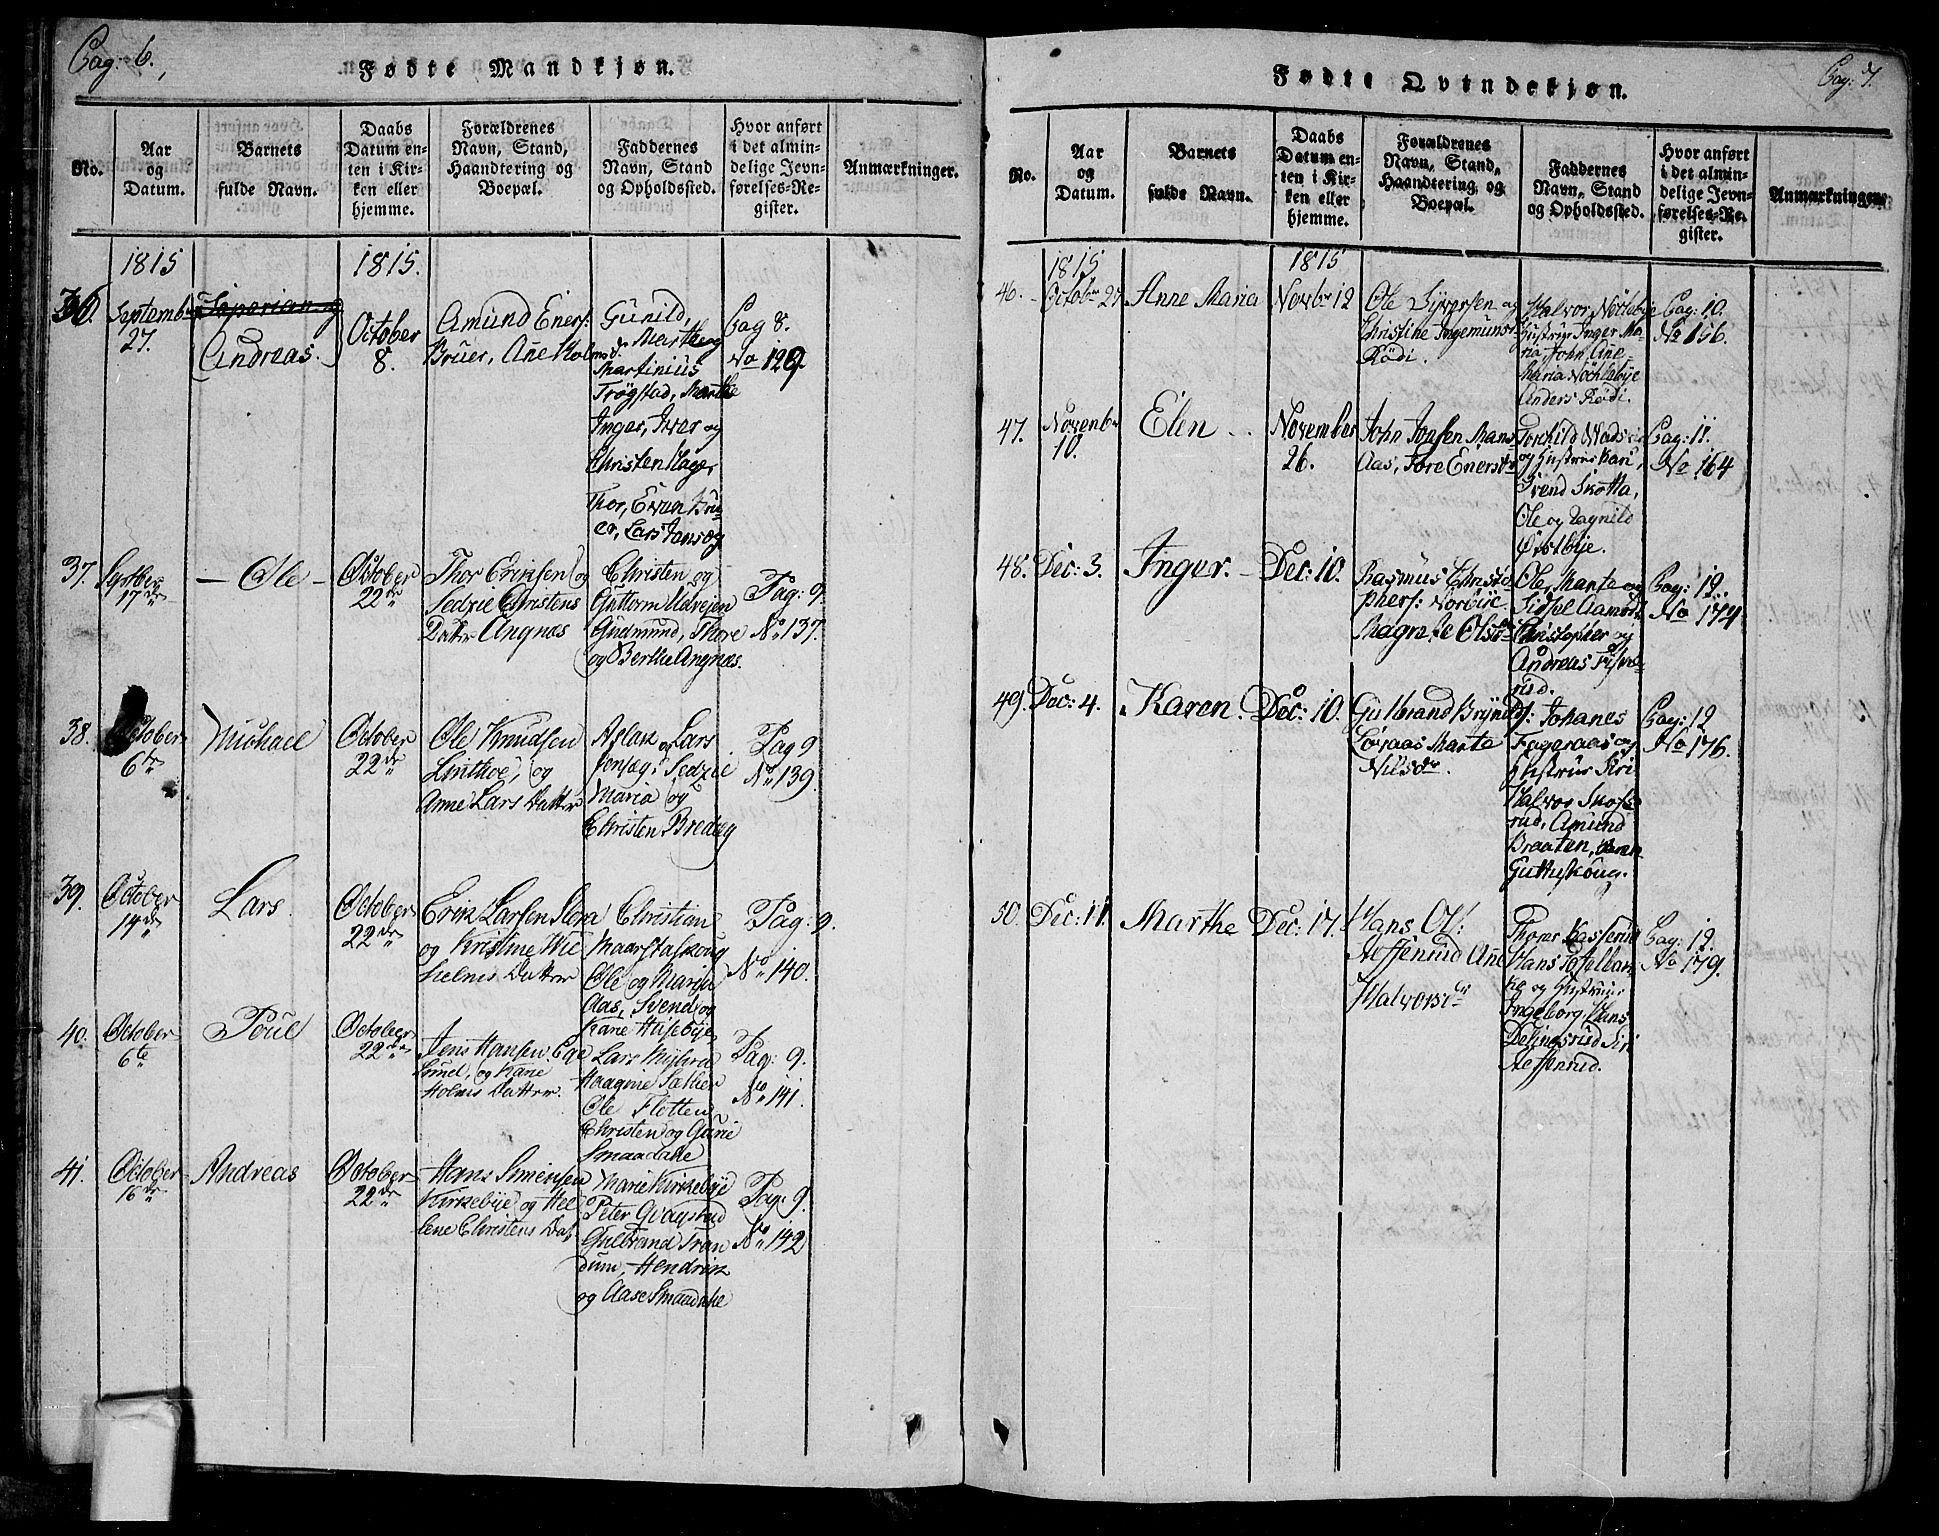 Pag: 6.
Fødte Mandkjøn.
No.
Aar
og
Datum.
Barnets
fulde Navn.
Daabs
Datum en-
ten i Kir-
ken eller
hjemme.
Forældrenes
Navn, Stand,
Haandtering og
Boepæl.
Faddernes
Navn, Stand
og Opholdssted.
Hvor anført
i det almin-
delige Jevn-
førelses-Re-
gister.
Anmærkninger.
1815
1815.
36.
Septembr
27.
Andreas.
October
8.
Amund Eners:
Bruer, Ane Holmsd.
Gunild,
Marthe og
Martinius
Trøgstad, Marthe
Inger, Iver og
Christen Hager
Thor, Even Bru-
er, Lars Jonsøg
Pag 8.
No 129.
37.
Septber
17de
Ole
October
22de
Thor Eriksen og
Sedzie Christens
Datter Angnæs
Christen og
Guttorm Udvejen
Gudmund, Thore
og Berthe Angnæs.
Pag: 9.
No 137.
38.
October
6te
Michael
October
22de
Ole Knudsen
Linthoe, og
Anne Lars Datter
Aslak, Lars
Jonsøg, Sedzie
Maria og
Christen Bredeg
Pag 9
No 139.
39.
October
14de
Lars
October
22de
Erik Larsen Slora
og Kristine Wil
helms Datter
Christian
Maarstaskoug
Ole og Maria
Aas, Svend og
Kane Haseby
Pag: 9.
No 140.
40.
October
6te
Poul
October
22de
Jens Hansen Ege
og Kane
Holmes Datter
Lars
Haagine Sæther
Ole Flotten
Christen og Gurie
Smaadahle
Pag: 9.
No 141.
41.
October
16de
Andreas
October
22de
Hans Simensen
Kirkebye og Hel
lene Christens Dat
Marie Kirkebye
Peter Qvagstad
Gulbrand Tran
dum, Hendrik
og Aase Smaadahle
Pag: 9.
No 142
Pag: 7.
Fødte Qvindekjøn.
No.
Aar
og
Datum.
Barnets
fulde Navn.
Daabs
Datum en-
ten i Kir-
ken eller
hjemme.
Forældrenes
Navn, Stand,
Haandtering og
Boepæl.
Faddernes
Navn, Stand
og Opholdssted.
Hvor anført
i det almin-
delige Jevn-
førelses-Re-
gister.
Anmærkninger.
1815
1815
46.
Octobr 27
Anne Maria
Novbr 12
Ole Syversen og
Christine Ingemunsd
Rødi.
Halvor Nøclebye
Hustrue Inger Ma-
ria, John Ane
Maria Nøclebye
Anders Rødi.
Pag: 10.
No 156.
47.
Novenbr
10.
Elen
November
26.
John Jonsen Mans
Aas, Tore Enersdr
Torkild Mads
og Hustrue Kari,
Svend Skotta,
Ole og Ragnild
Østbye.
Pag: 11.
No 164
48.
Dec: 3.
Inger.
Dec: 10.
Rasmus Christo
phers: Norbye
Magrete Olsdr
Ole, Marte og
Sidsel Aamodt
Christopher og
Andreas
rud.
Pag: 12.
No 174
49.
Dec: 4.
Karen.
Dec: 10.
Gulbrand Brynd
Løraas Marte
Nilsdr.
Johanes
Fageraas og
Hustrue Siri
Halvor Skofs
rud, Amund
Braaten, Karen
Guttuskoug.
Pag: 12
No 176.
50.
Dec: 11.
Marthe
Dec: 17.
Hans Ols:
Aessenrud Ane
Halvorsdr
Thores Kasserud
Hans Tøfelbak
ke og Hustrue
Ingeborg, Hans
Dellingsrud Siri
Aessenrud.
Pag: 12.
No 179.